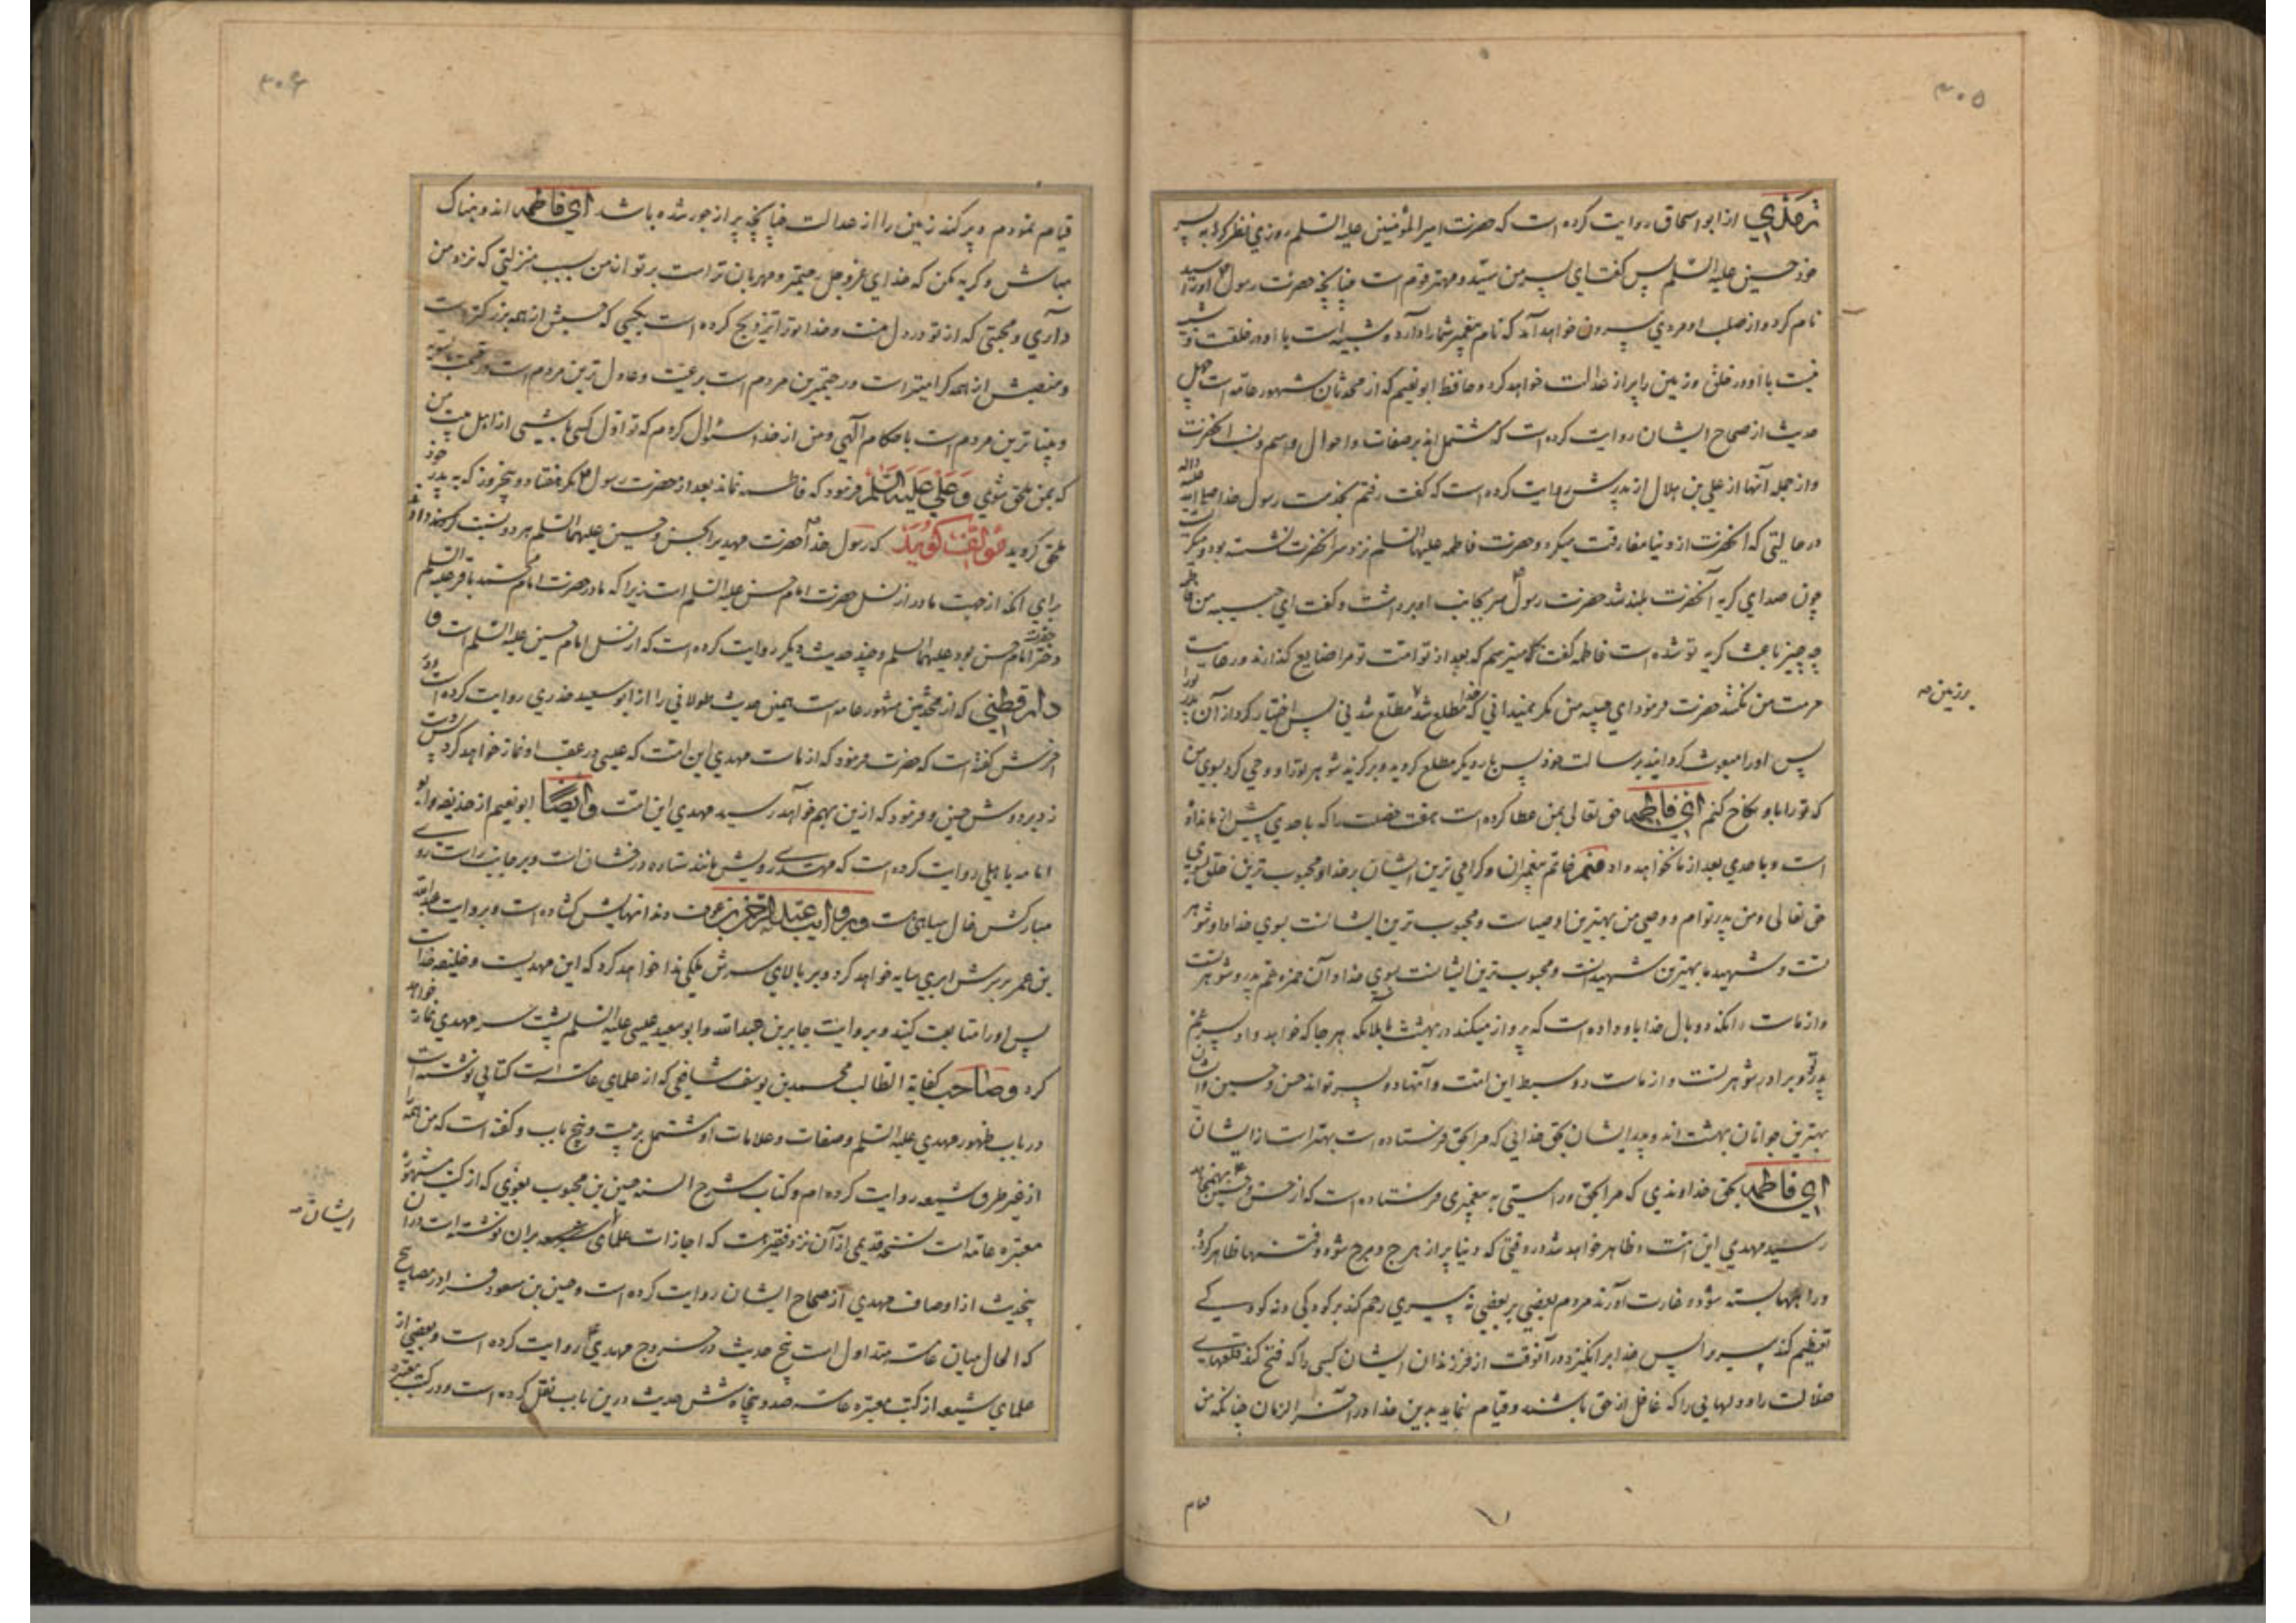 ۳۰۵
ترمذي از ابو اسحاق روایت کرده است که حضرت امیر المؤمنین علیه السلم روزي نظر کرد به پسر
خود حسین علیه السلم پس گفت این پسر من سید و مهتر قوم است چنانچه حضرت رسول ص او را سید
نام کرد و از صلب او مردي بیرون خواهد آمد که نام پیغمبر شما را دارد و شبیه است با او در خلقت و شبیه
نیست با او در خلق و زمین را پر از عدالت خواهد کرد و حافظ ابو نعیم که از محدثان مشهور عامه است چهل
حدیث از صحاح ایشان روایت کرده است که مشتمل اند بر صفات و احوال و اسم و نسب انحضرت
و از جمله آنها از علي بن هلال از پدرش روایت کرده است که گفت رفتم بخدمت رسول خدا صلی الله علیه واله
در حالتي که انحضرت از دنیا مفارقت میکرد و حضرت فاطمه علیها السلم نزد سر انحضرت نشسته بود و میگریست
چون صداي گریه آنحضرت بلند شد حضرت رسول ص سر بجانب او برداشت و گفت اي حبیبه من فاطمه
چه چیز باعث گریه تو شده است فاطمه گفت که میترسم که بعد از تو امت تو مرا ضایع گذارند و رعایت
حرمت من نکنند حضرت فرمود اي حبیبه من مگر نمیداني که خدا مطلع شد مطلع شدني پس اختیار کرد از آن پدر تورا
برزمین صه
پس اورا مبعوث گردانید برسالت خود پس بار دیگر مطلع گردید و برگزید شوهر تو را و وحي کرد بسوي من
که تورا باو نکاح کنم اي فاطمه حق تعالی بمن عطا کرده است هفت خصلت را که باحدي پیش از ما نداده
است و باحدي بعد از ما نخواهد داد منم خاتم پیغمبران و گرامي ترین ایشان بر خدا و محبوب ترین خلق بسوي
حق تعالی و من پدر توام و وصي من بهترین اوصیاست و محبوب ترین ایشانست بسوي خدا و او شوهر
تست و شهید ما بهترین شهیدانست و محبوب ترین ایشانست بسوي خدا و آن حمزه عم پدر و شوهر تست
و از ماست انکه دو بال خدا باو داده است که پرواز میکند در بهشت با ملائکه بهر جا که خواهد و او پسر عم
پدر تو و برادر شوهر تست و از ماست دو سبط این امت و آنها دو پسر تواند حسن و حسین و ایشان
بهترین جوانان بهشت اند و پدر ایشان بحق خدائي که مرا بحق فرستاده است بهتر است از ایشان
اي فاطمه بحق خداوندي که مرا بحق و راستي به پیغمبري فرستاده است که از حسن و حسین ع بهم خواهد
رسید مهدي این امت و ظاهر خواهد شد در وقتي که دنیا پر از هرج و مرج شود و فتنها ظاهر گردد
و راهها بسته شود و غارت آورند مردم بعضي بر بعضي نه پیري رحم کند بر کودکي و نه کودکے
تعظیم کند پیري را پس خدا برانگیزد در آنوقت از فرزندان ایشان کسي را که فتح کند قلعهاے
ضلالت را و دلهایي را که غافل از حق باشند و قیام نماید بدین خدا در آخر الزمان چنانکه من
قیام
۳۰۶
قیام نمودم و پر کند زمین را از عدالت چنانچه پر از جور شده باشد اي فاطمه اندوهناک
مباش و گریه مکن که خداي عزوجل رحیمتر و مهربان تر است بر تو از من بسبب منزلتي که نزد من
داري و محبتي که از تو در دل منست و خدا تو را تزویج کرده است بکسي که حسبش از همه بزرگتر است
و منصبش از همه گرامیتر است و رحیمترین مردم است برعیت و عادل ترین مردم است در قسمت بالسویه
و بیناترین مردم است باحکام الهي و من از خدا سئوال کردم که تو اول کسي باشي از اهل بیت من
که بمن ملحق شوي و علي علیه السلم فرمود که فاطمه نماند بعد از حضرت رسول ص مگر هفتاد و پنجروز که به پدر خود
ملحق گردید مؤلف گوید که رسول خدا ص حضرت مهدي را بحسن و حسین علیهما السلم هر دو نسبت
براي آنکه از جهت مادر از نسل حضرت امام حسن علیه السلم است زیرا که مادر حضرت امام محمد باقر علیه السلم
دختر حضرت امام حسن بود علیهما السلم و چند حدیث دیگر روایت کرده است که از نسل امام حسین علیه السلم است و
دارقطني که از محدثین مشهور عامه است همین حدیث طولاني را از ابو سعید خدري روایت کرده است و در
آخرش گفته است که حضرت فرمود که از ماست مهدي این امت که عیسی در عقب او نماز خواهد کرد پس دست
زد بر دوش حسین و فرمود که ازین بهم خواهد رسید مهدي این امت وایضًا ابو نعیم از حذیفه و ابو
امامه باهلي روایت کرده است که مهدے رویش مانند ستاره درخشان است و بر جانب راست روے
مبارکش خال سیاهي هست و بروایت عبد الرحمن بن عوف دندانهایش گشاده است و بروایت عبدالله
بن عمر بر سرش ابري سایه خواهد کرد و بر بالاي سرش ملکي ندا خواهد کرد که این مهدیست و خلیفه خداست
پس او را متابعت کنید و بروایت جابر بن عبدالله و ابو سعید عیسی علیه السلم پشت سر مهدي نماز خواهد
کرد و صاحب کفایة الطالب محمد بن یوسف شافعي که از علماي عامه است کتابي نوشته است
در باب ظهور مهدي علیه السلم و صفات و علامات او مشتمل بر بیست و پنج باب و گفته است که من همه را
از غیر طرق شیعه روایت کرده ام و کتاب شرح السنه حسین بن مسعود بغوي که از کتب مشهوره
معتبره عامه است نسخه قدیمي از آن نزد فقیر هست که اجازات علماي ایشان بران نوشته است در آن
ایشان صه
پنجحدیث از اوصاف مهدي از صحاح ایشان روایت کرده است و حسین بن مسعود فرا در مصابیح
که الحال میان عامه متداول است پنج حدیث در خروج مهدي ع روایت کرده است و بعضي از
علماي شیعه از کتب معتبره عامه صد و پنجاه شش حدیث درین باب نقل کرده است و در کتب معتبره